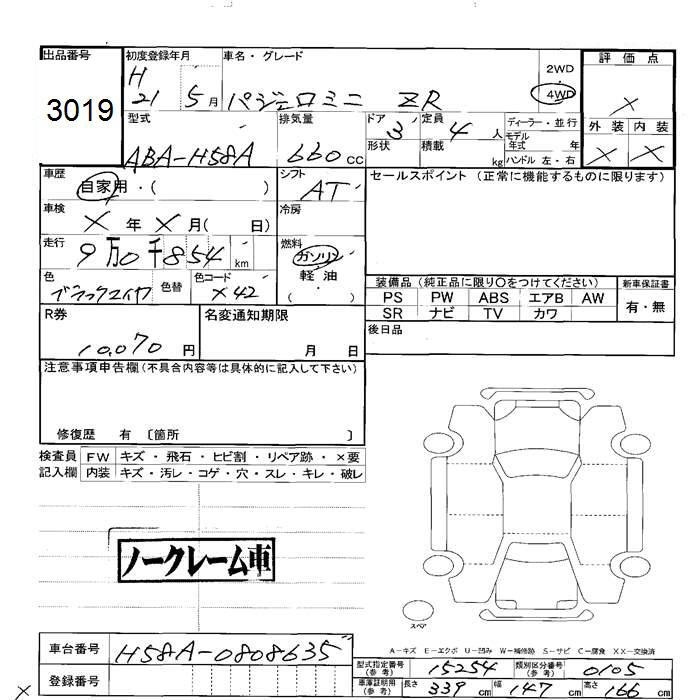 出品番号
3019
初度登録年月
H
21 5月
車名・グレード
パジェロミニ ZR
2WD
4WD
評価点
×
外装 内装
× ×
型式
ABA-H58A
排気量
660 cc
ドア 3
形状
定員 4 人
積載 kg
ディーラー・並行
モデル年式 年
ハンドル 左・右
車歴
自家用・( )
シフト
AT
車検
× 年 × 月( 日)
冷房
走行
9万0千854 km
燃料
ガソリン
軽油
・( )
色
色替
色コード
X42
セールスポイント (正常に機能するものに限ります)
装備品 (純正品に限り〇をつけてください)
PS PW ABS エアB AW
SR ナビ TV カワ
新車保証書
有・無
後日品
R券
10,070 円
名変通知期限
月 日
注意事項申告欄(不具合内容等は具体的に記入して下さい)
修復歴 有 〔箇所 〕
検査員 FW キズ・飛石・ヒビ割・リペア跡・×要
記入欄 内装 キズ・汚レ・コゲ・穴・スレ・キレ・破レ
ノークレーム車
スペア
A-キズ E-エクボ U-凹み W-補修跡 S-サビ C-腐食 XX-交換済
車台番号
H58A-0808635
登録番号
型式指定番号(参考) 15254
類別区分番号(参考) 0105
車庫証明用(参考) 長さ 339 cm 幅 147 cm 高さ 166 cm
×